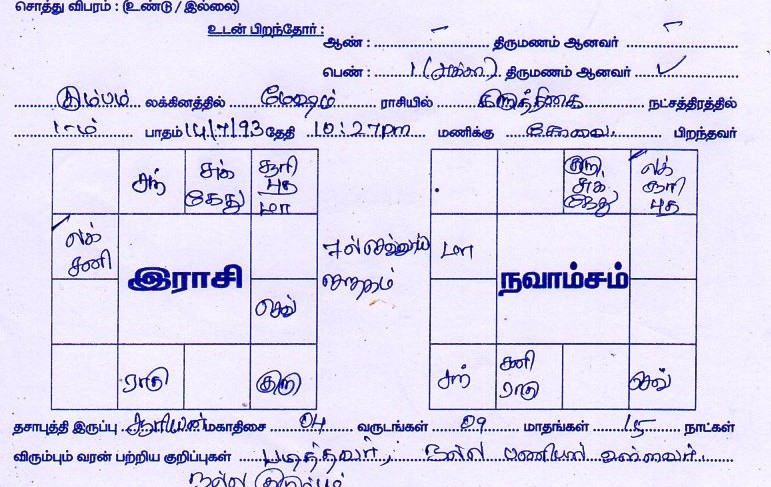 சொத்து விபரம் : (உண்டு / இல்லை)
உடன் பிறந்தோர் :
ஆண் : – திருமணம் ஆனவர் –
பெண் : 1 (அக்கா) திருமணம் ஆனவர் ✓
கும்பம் லக்கினத்தில் மேஷம் ராசியில் கிருத்திகை நட்சத்திரத்தில்
1ஆம் பாதம் 14/7/93 தேதி 10:27pm மணிக்கு கோவை பிறந்தவர்
சந் சுக் சூரி லக்
கேது புத சூரி
மா புத
குரு
சுக்
கேது
லக்
சனி
7ல் செவ்வாய்
ஜாதகம்
மா
இராசி
நவாம்சம்
செவ்
ராகு குரு
சந் சனி
ராகு
செவ்
தசாபுத்தி இருப்பு சூரியன் மகாதிசை 04 வருடங்கள் 09 மாதங்கள் 15 நாட்கள்
விரும்பும் வரன் பற்றிய குறிப்புகள் படித்தவர், நல்ல பணியில் உள்ளவர்.
நல்ல குடும்பம்